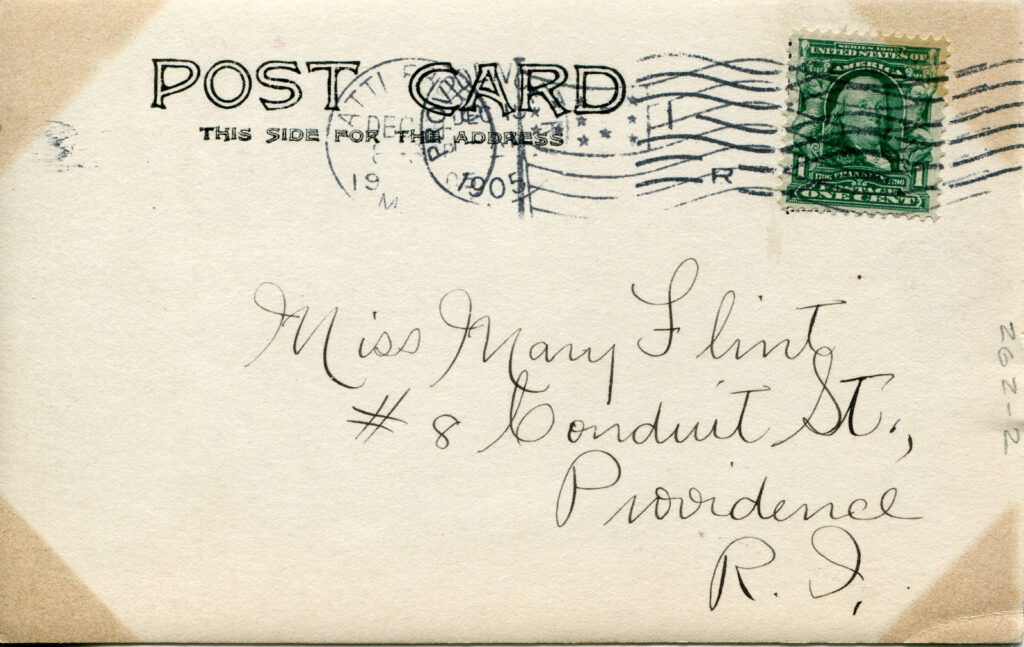 POST CARD
THIS SIDE FOR THE ADDRESS
DEC
19
M.
DEC
1905
R
SERIES 1902
UNITED STATES OF
AMERICA
1706 FRANKLIN 1790
1 1
POSTAGE
ONE CENT
Miss Mary Flint
# 8 Conduit St.,
Providence
R. I.
262-2